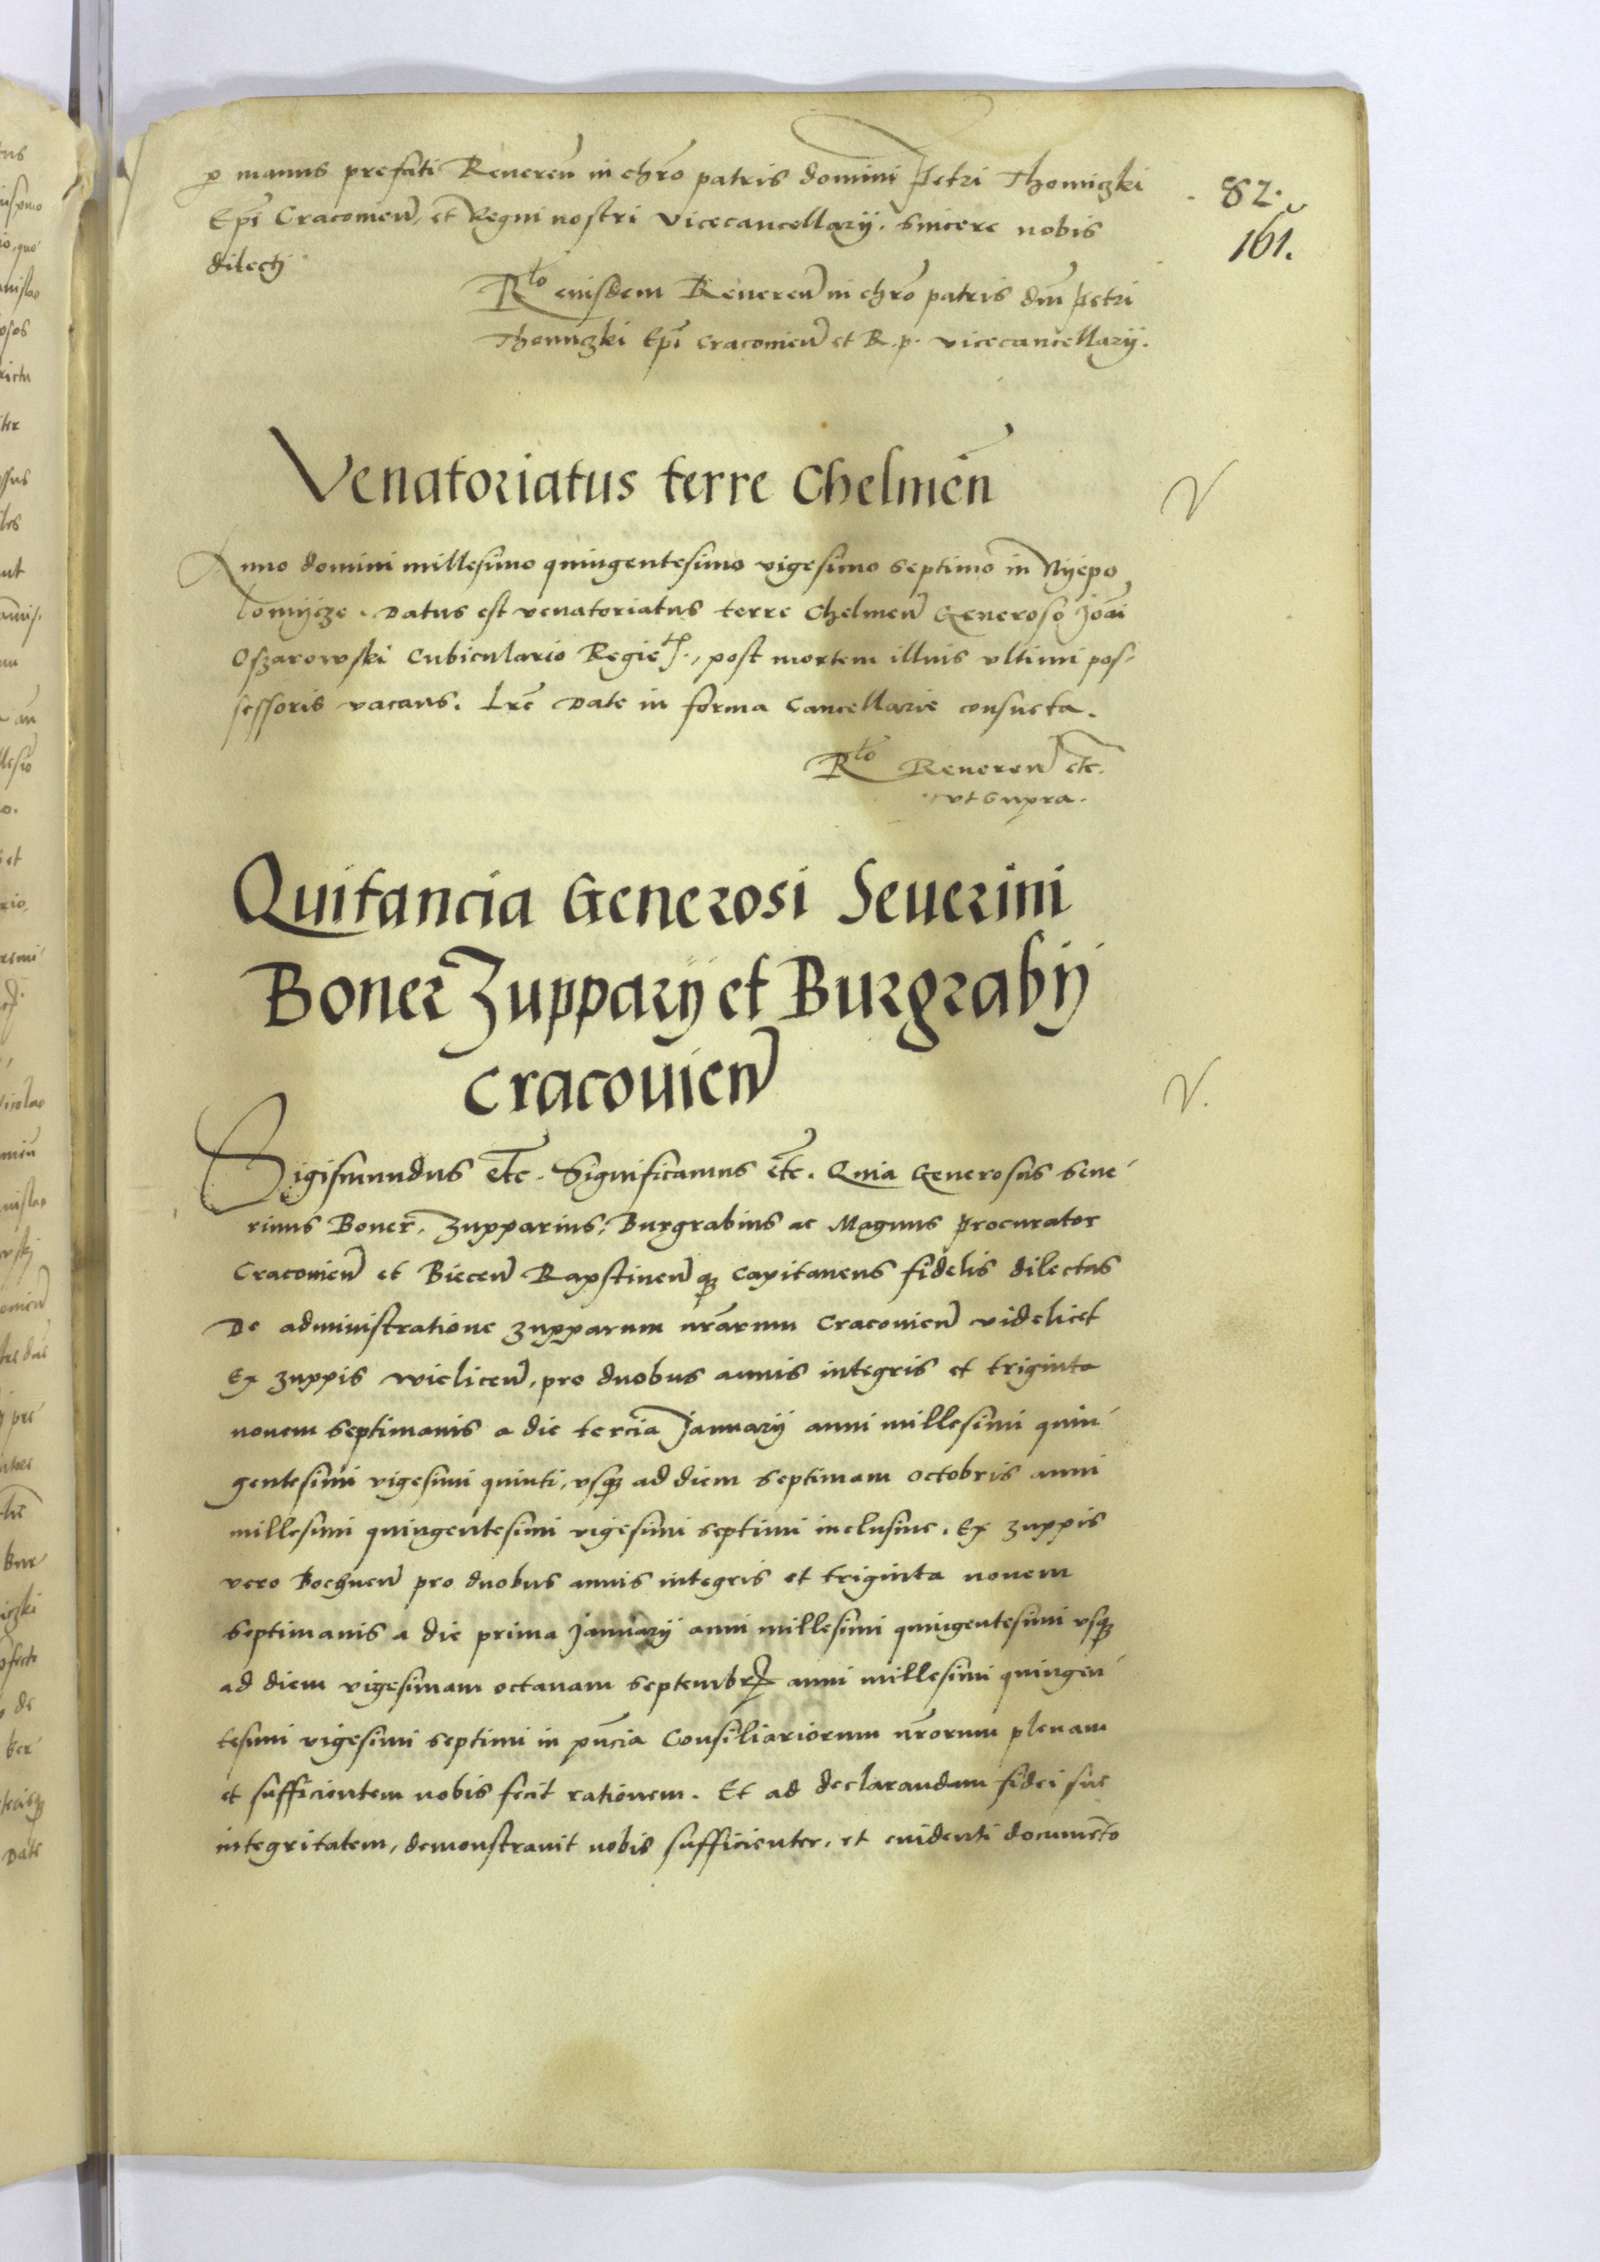 p manus prefati Reveren in chro patris domini Petri Thomiczki
82.
Epi Cracovien, et Regni nostri vicecancellarij. sincere nobis
161.
dilecti
Rlo eiusdem Reveren in chro patris dni Petri
Thomiczki Epi Cracovien et R. p. vicecancellarij.
Venatoriatus terre Chelmen
V
Anno domini millesimo quingentesimo vigesimo septimo in Nyepo
lomijcze. Datus est venatoriatus terre Chelmen Generoso Joai
Oszarowski Cubiculario Regie, post mortem illius ultimi pos-
sessoris vacans. Lre Date in forma Cancellarie consueta.
Rlo Reveren etc.
vt supra.
Quitancia Generosi Seuerini
Boner Zupparij et Burgrabij
Cracouien
V.
Sigismundus etc. Significamus etc. Quia Generosus Seue-
rinus Boner, Zupparius, Burgrabius ac Magnus Procurator
Cracouien et Biecen Rapstinen q3 Capitaneus fidelis dilectus
De administratione zupparum nrarum Cracouien videlicet
Ex zuppis Wielicen, pro duobus annis integris et triginta
nouem septimanis a die tercia Januarij anni millesimi quin-
gentesimi vigesimi quinti, vsq3 ad diem septimam octobris anni
millesimi quingentesimi vigesimi septimi inclusiue. Ex zuppis
vero Bochnen pro duobus annis integris et triginta nouem
septimanis a die prima Januarij anni millesimi quingentesimi vsq3
ad diem vigesimam octauam septembr anni millesimi quingen-
tesimi vigesimi septimi in pncia Consiliariorum nrorum plenam
et sufficientem nobis fecit rationem. Et ad declarandam fidei sue
integritatem, demonstrauit nobis sufficienter, et euidenti documento